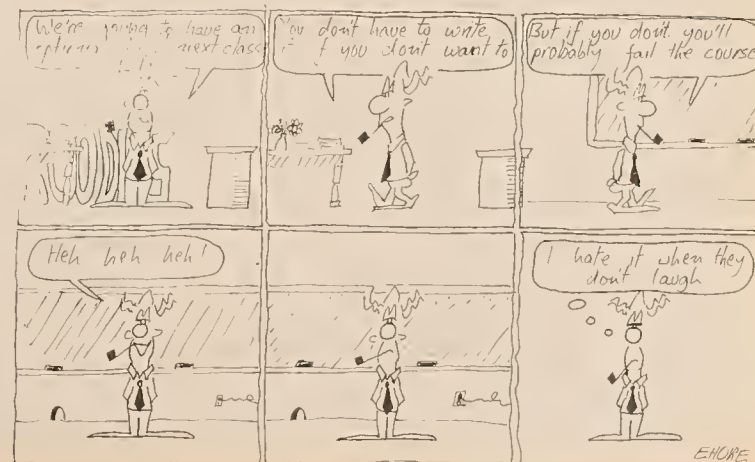 We're going to have an
next class
You don't have to write
if you don't want to
But if you don't you'll
probably fail the course
Heh heh heh!
I hate it when they
don't laugh
EHORE